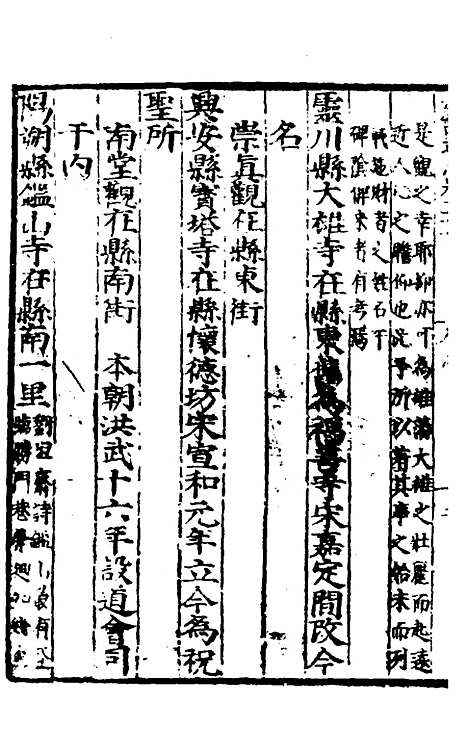 是觀之幸耶抑亦可為雄藩大雄之壯麗而起遠
近人心之瞻仰也況予所以著其事之始末而列
財者之姓石于
碑陰俾來者有考焉
靈川縣大雄寺在縣東舊為福善寺宋嘉定間改今
名
崇真觀在縣東街
興安縣寳塔寺在縣懷德坊宋宣和元年立今為祝
聖所
南堂觀在縣南街 本朝洪武十六年設道會司
于内
陽朔縣鑑山寺在縣南一里